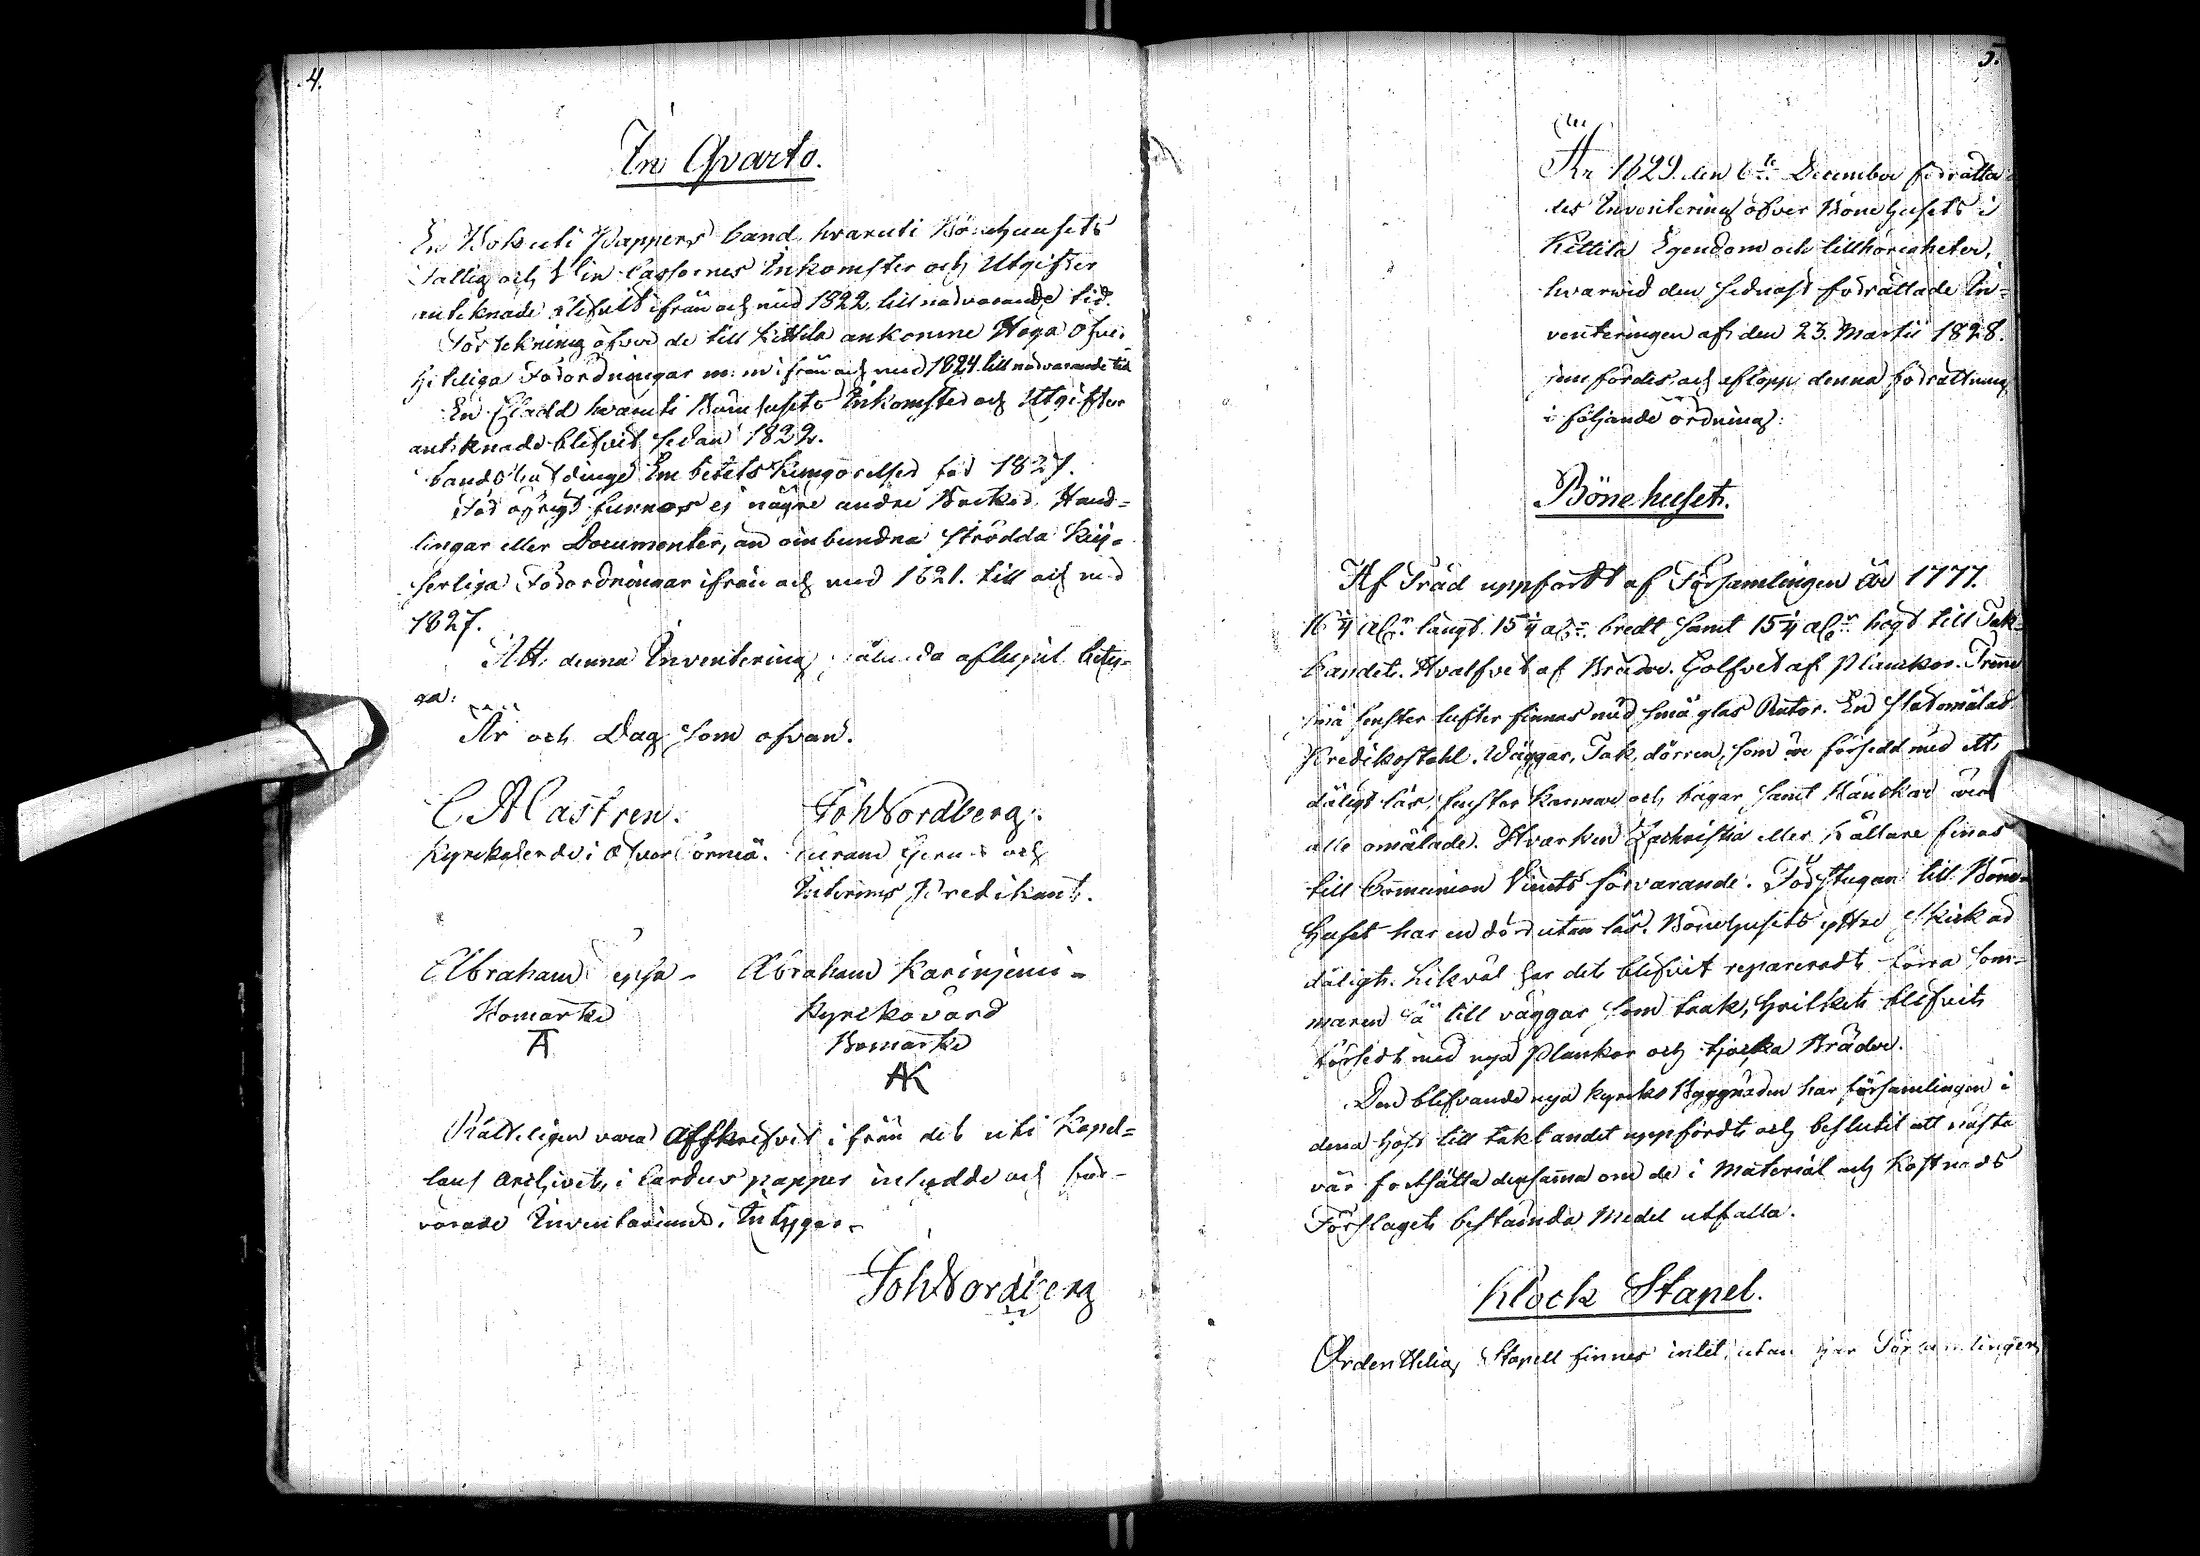 4.
In Qvarto.
En Bok uti Pappers band, hvaruti Bönehusets
Fattig och Lin Cassornes Inkomster och Utgifter
anteknade blifvit ifrån och med 1822. till närvarande tid.
Förtekning öfver de till Kittilä ankomne Höga Öfver-
heteliga Förordningar m: m ifrån och med 1824. till närvarande tid
En Cladd hvaruti Bönehusets Inkomster och Utgifter
anteknade blifvit sedan 1822.
Landshöfdinge Embetets Kungörelser för 1827.
För öfrigt funnos ej någre andre Böcker, Hand-
lingar eller Documenter, än oinbundna strödda Kej-
serliga Förordningar ifrån och med 1821. till och med
1827.
Att denna Inventering således aflupit bety-
ga:
År och Dag som ofvan.
C. A Castren. Joh Nordberg.
Kyrkoherde i Öfver Torneå. och
Interims Predikant.
Abraham Abraham Karinjemi -
Bomärke Kyrkovärd
A Bomärke
AK
Rätteligen vara Affskrifvit ifrån det uti Kapel-
lans Archivet, i Cardus papper inhydde och för-
varade Inventarium, Intygar.
Joh Nordberg
5.
År 1829. den 6te December förrätta-
des Inventering öfver Böne husets i
Kittilä Egendom och tillhörigheter,
hvarwid den sednast förrättade In-
venteringen af den 23. Martii 1828.
jemfördes, och aflopp denna förrättning
i följande ordning:
Bönehuset.
Af Träd uppfördt af Församlingen år 1777.
16 1/4 alnr långt. 15 1/4 alnr bredt samt 15 1/4 alnr högt till Tak-
bandet. Hvalfvet af Bräder. Golfvet af Plankor. Trenne
små fenster lufter finnas med små glas Rutor. En slät omålad
Predikostohl. Wäggar, Tak, dörren, som är försedd med ett
dåligt lås, fenster karmar och bågar samt Bänckar äro
alle omålade. Hvarken Sachristia eller Källare finnas
till Communion Vinets förvarande. Förstugan till Böne-
huset har en dörr utan lås. Bönehusets yttre Skick är
dåligt. Likväl har det blifvit repareradt förra som-
maren så till väggar som taak, hvilket blifvit
försedt med nya Plankor och tjocka Bräder.
Den blifvande nya Kyrko Byggnaden har församlingen i
denna höst till takbandet uppfördt och beslutit att nästa
vår fortsätta densamma om de i Material och Kostnads
Förslaget bestämda Medel utfalla.
Klock Stapel.
Ordenttelig Stapell finnes intet, utan har Församlingen